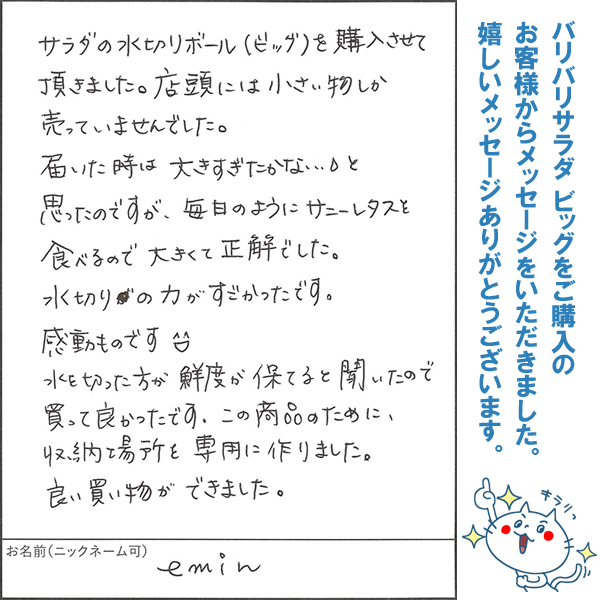 バリバリサラダ ビッグをご購入の
お客様からメッセージをいただきました。
嬉しいメッセージありがとうございます。
サラダの水切りボール(ビッグ)を購入させて
頂きました。店頭には小さい物しか
売っていませんでした。
届いた時は 大きすぎたかな…💧と
思ったのですが、毎日のようにサニーレタスを
食べるので 大きくて正解でした。
水切りの力がすごかったです。
感動ものです
水を切った方が鮮度が保てると聞いたので
買って良かったです。この商品のために、
収納場所を専用に作りました。
良い買い物ができました。
お名前(ニックネーム可)
emin
キラリっ